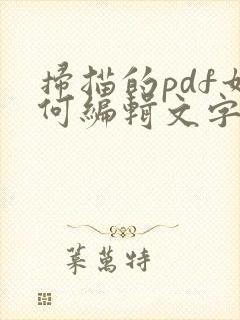 掃描的pdf如
何編輯文字
萊萬特